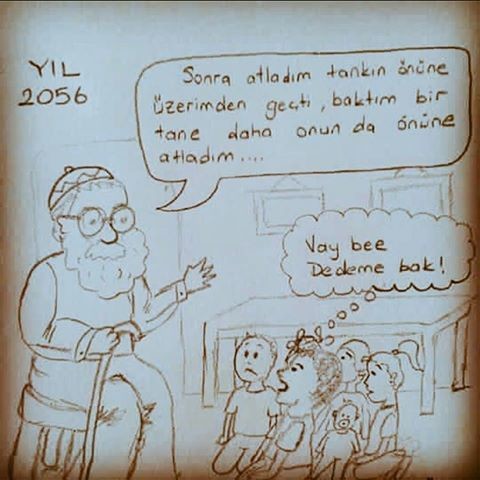 YIL
2056
Sonra atladım tankın önüne
üzerimden geçti, baktım bir
tane daha onun da önüne
atladım....
Vay bee
Dedeme bak!